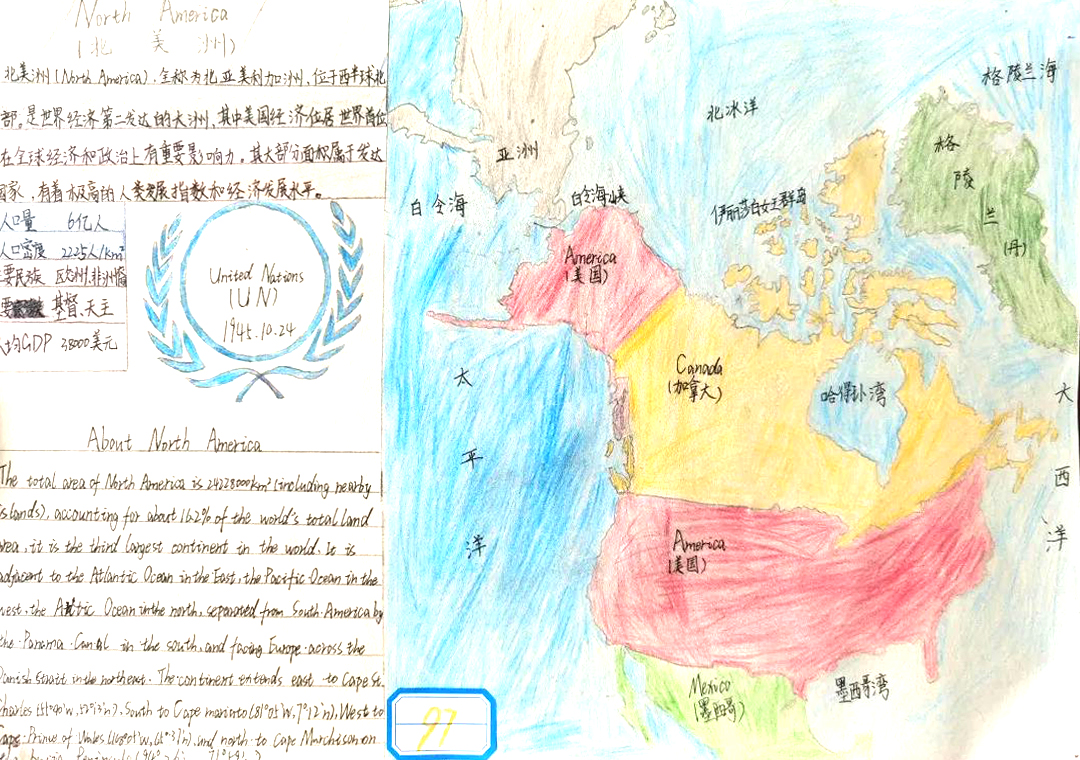 North America
(北 美 洲)
北美洲(North America),全称为北亚美利加洲,位于西半球北
部。是世界经济第二发达的大洲,其中美国经济位居世界首位
在全球经济和政治上有重要影响力。其大部分面积属于发达
国家,有着极高的人类发展指数和经济发展水平。
人口量 6亿人
人口密度 22.25人/km²
要民族 欧洲,非洲裔
要 基督,天主
人均GDP 38000美元
United Nations
(UN)
1945.10.24
About North America
The total area of North America is 24228000km² (including nearby
islands), accounting for about 16.2% of the world's total land
area, it is the third largest continent in the world. It is
adjacent to the Atlantic Ocean in the East, the Pacific Ocean in the
west, the Arctic Ocean in the north, separated from South America by
the Panama Canal in the south, and facing Europe across the
Danish Strait in the northeast. The continent extends east to Cape St.
Charles (51°40'W, 52°13'N), South to Cape (81°05'W, 7°12'N), West to
Cape Prince of Wales (168°01'W, ), and north to Cape Murchison on
亚洲
白令海
白令海峡
北冰洋
格陵兰海
伊丽莎白女王群岛
格陵兰(丹)
America
(美国)
Canada
(加拿大)
哈得孙湾
太平洋
大西洋
America
(美国)
Mexico
(墨西哥)
墨西哥湾
97